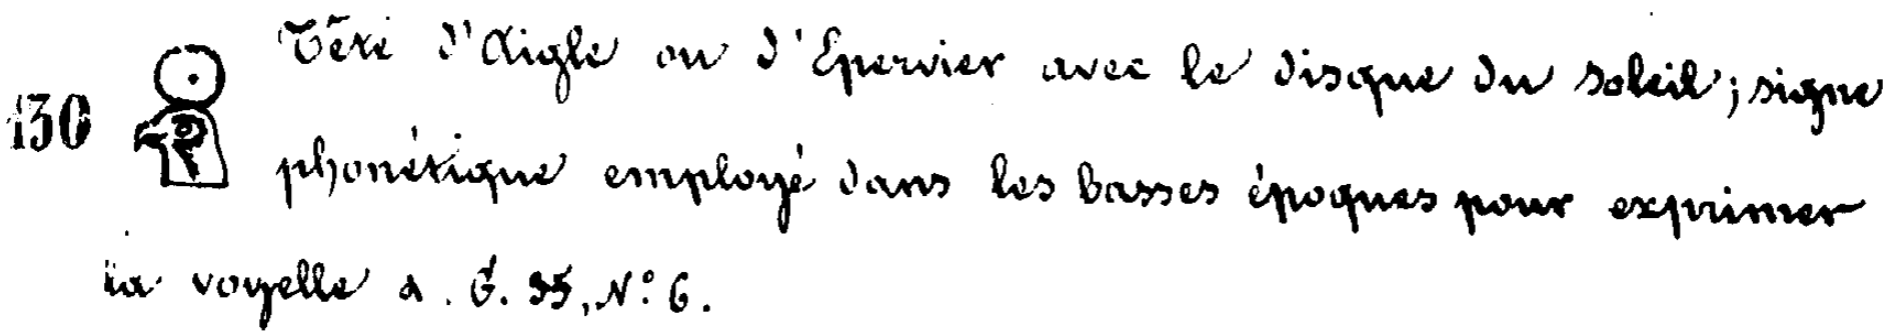 Tête d'Aigle ou d'Epervier avec le disque du soleil; signe
130 phonétique employé dans les basses époques pour exprimer
la voyelle a. G. 35, N.° 6.